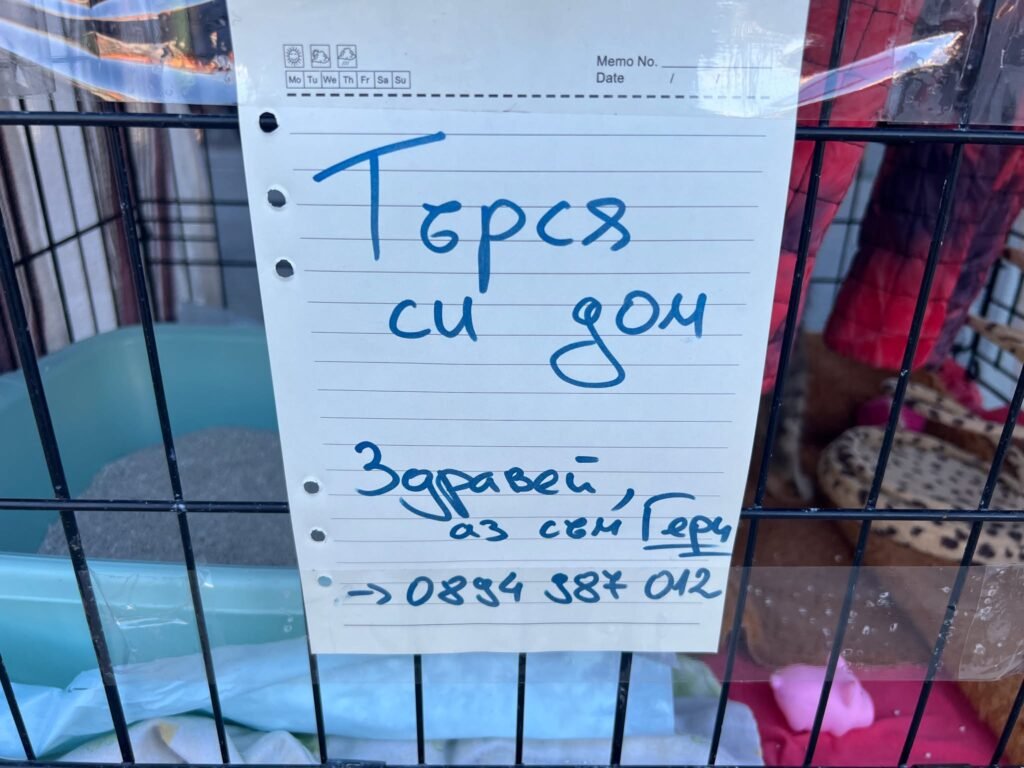 Memo No.
Mo Tu We Th Fr Sa Su
Date / /
Търся
си дом
Здравей,
аз съм Гери
→ 0894 987 012